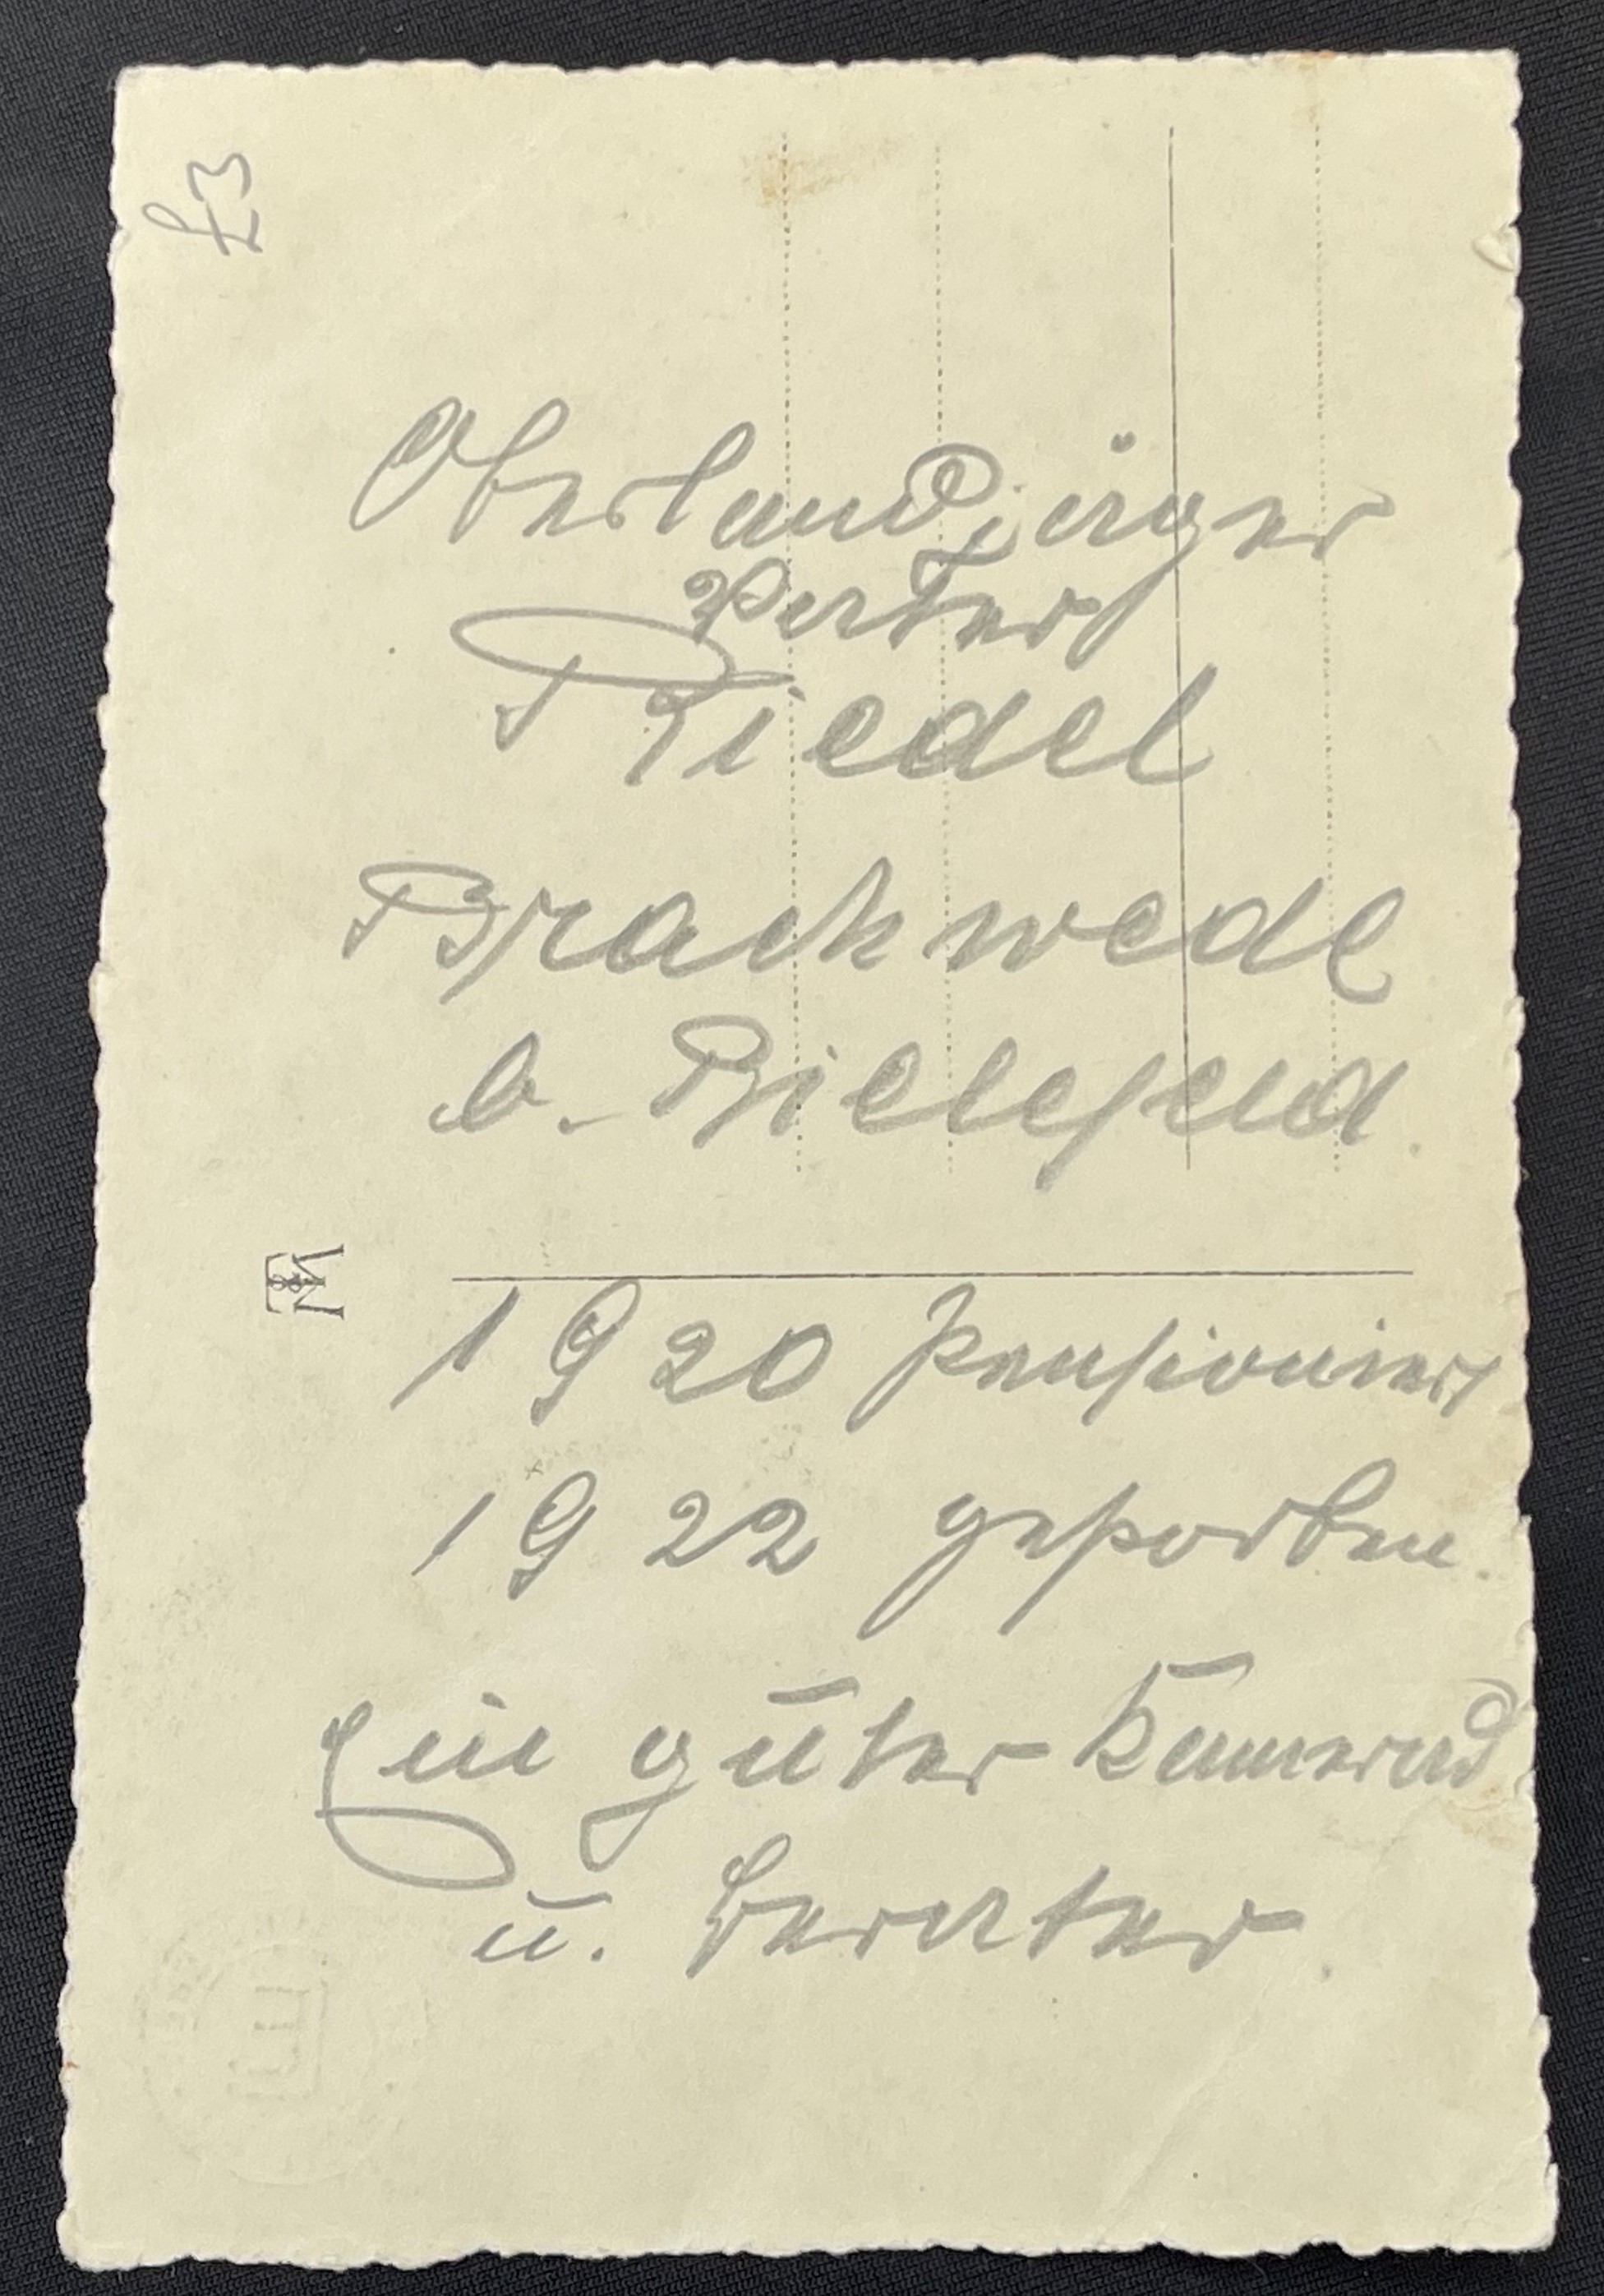 £3
Oberlandjäger
Riedel
Brackwede
b. Bielefeld.
1920 pensioniert
1922 gestorben
Ein guter Kamerad
u. Berater.